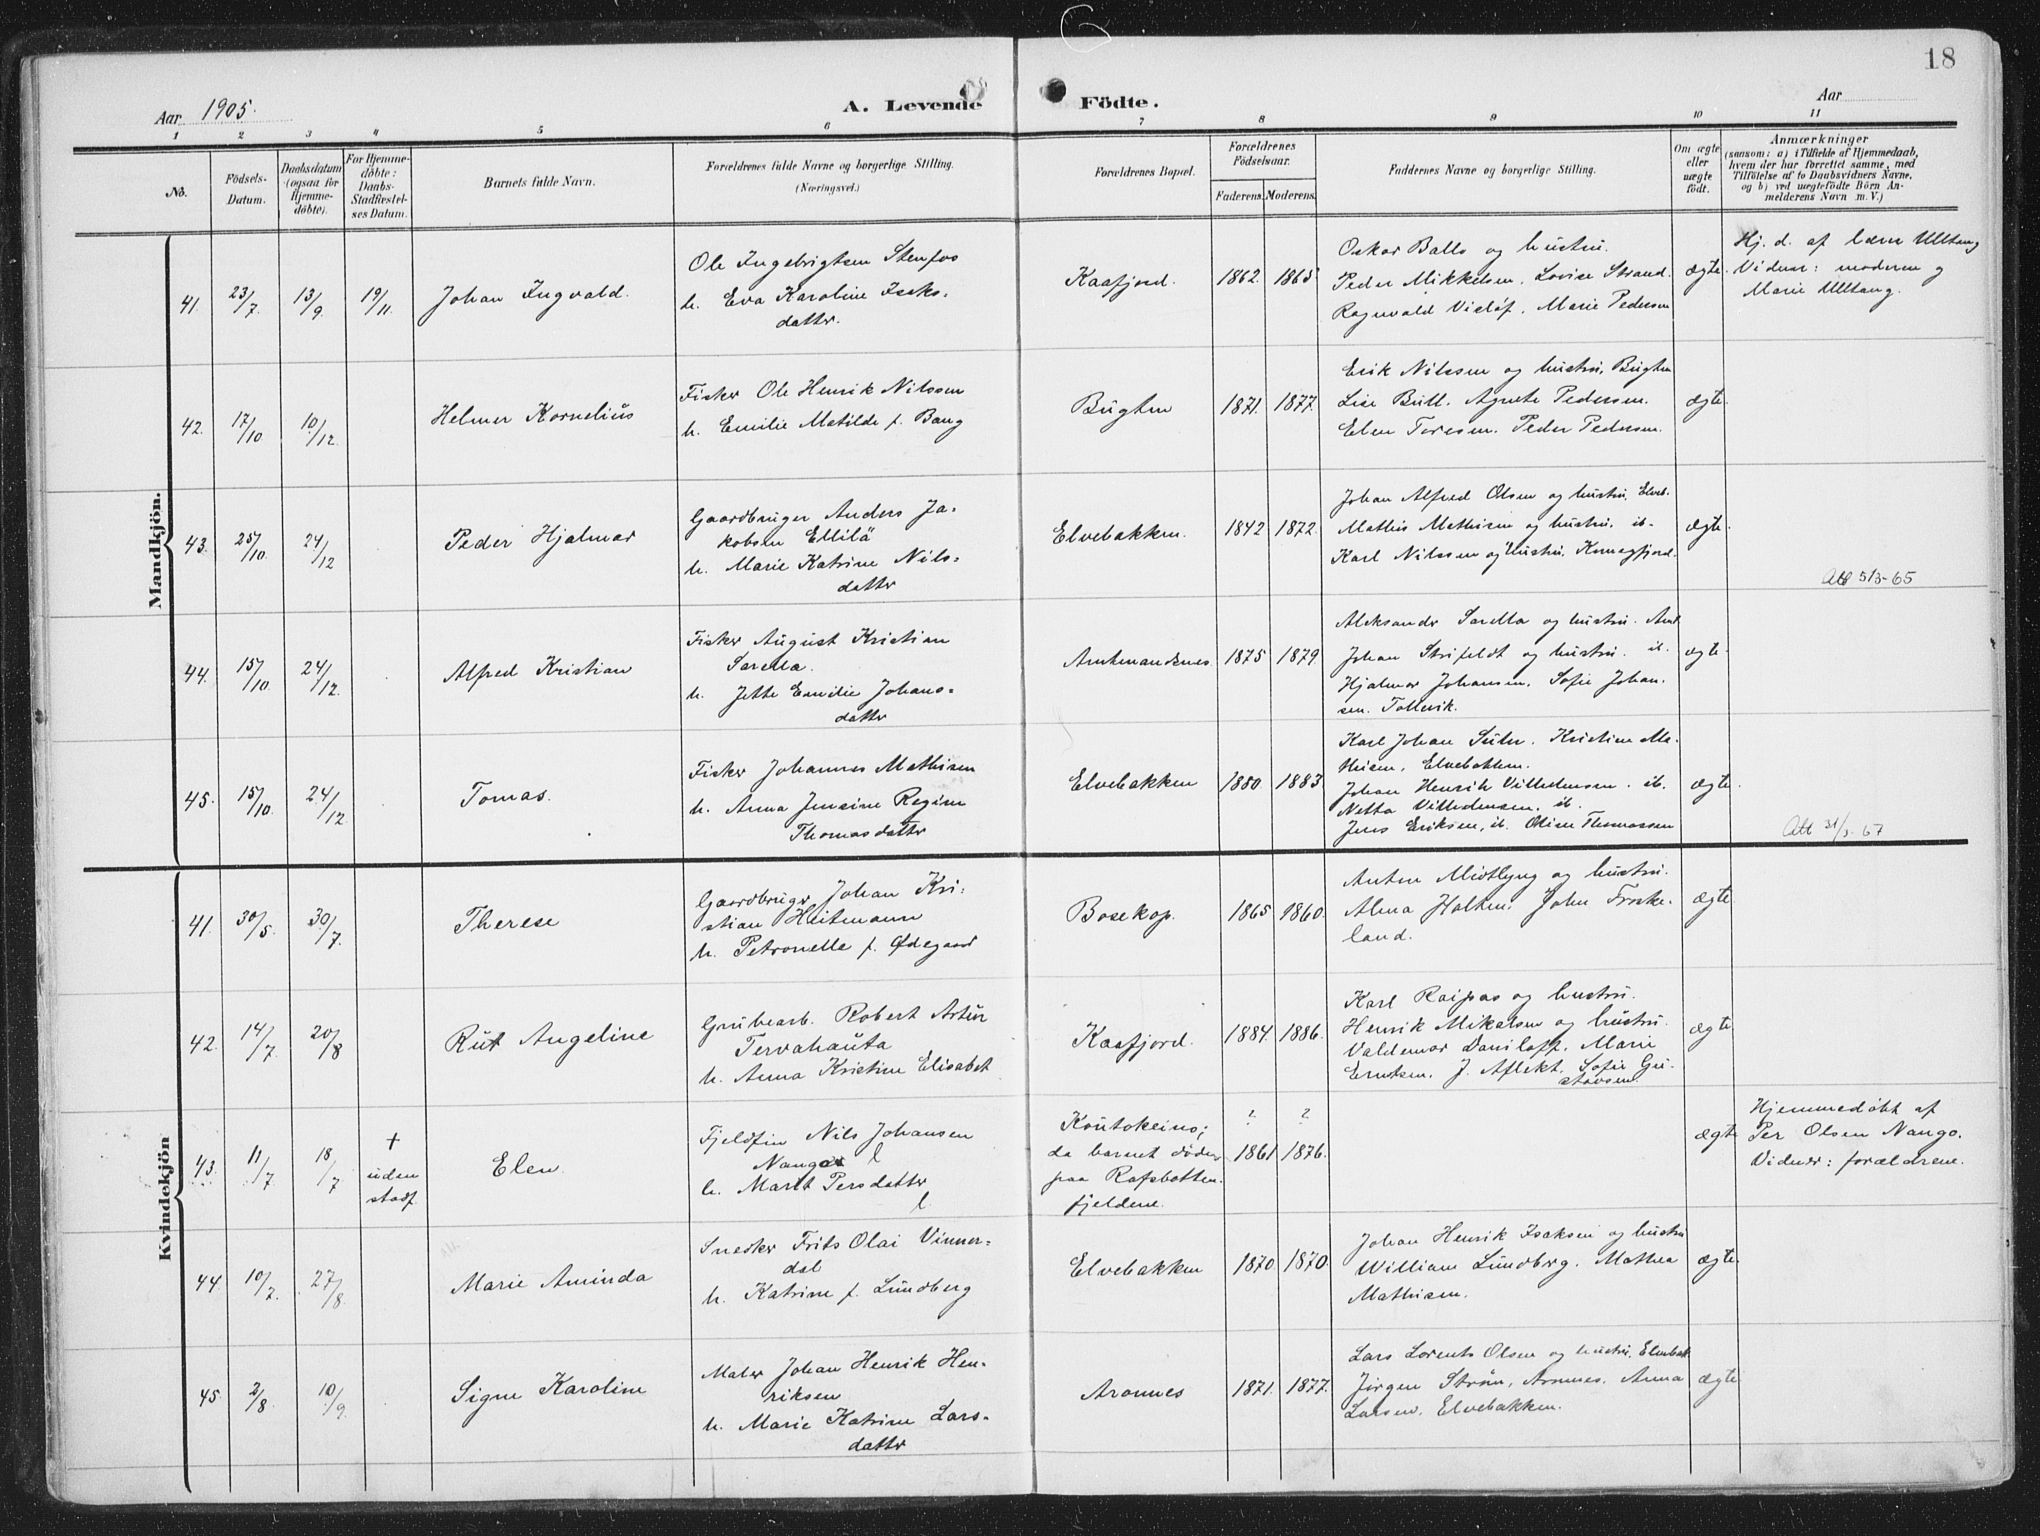 18
Aar 1905.
A. Levende Födte.
Aar
1 2 3 4 5 6 7 8 9 10 11
No.
Födsels-
Datum.
Daabsdatum
(ogsaa for
Hjemme-
döbte).
For Hjemme-
döbte:
Daabs-
Stadfæstel-
ses Datum.
Barnets fulde Navn.
Forældrenes fulde Navne og borgerlige Stilling.
(Næringsvei.)
Forældrenes Bopæl.
Forældrenes
Födselsaar.
Faderens. Moderens.
Faddernes Navne og borgerlige Stilling.
Om ægte
eller
uægte
födt.
Anmærkninger
(saasom: a) i Tilfælde af Hjemmedaab,
hvem der har forrettet samme, med
Tilföielse af to Daabsvidners Navne,
og b) ved uægtefödte Börn An-
melderens Navn m. V.)
Mandkjön.
41. 23/7. 13/9 19/11. Johan Ingvald.
Ole Ingebrigtsen Stenfos
h. Eva Karoline Isaks-
datter.
Kaafjord. 1862. 1865
Oskar Balls og hustru.
Peder Mikkelsen. Lovise Strand.
Ragnvald Visløf. Marie Pedersen
ægte.
Hj. d. af lærer Ulltang
Vidner: moderen og
Marie Ulltang.
42. 17/10. 10/12. Helmer Kornelius
Fisker Ole Henrik Nilssen
h. Emilie Matilde f. Bang
Bugten 1871. 1877.
Erik Nilssen og hustru, Bugten
Lise Bull. Agnete Pedersen.
Elen Toresen. Peder Pedersen.
ægte.
43. 25/10. 24/12 Peder Hjalmar
Gaardbruger Anders Ja-
kobsen Ellilä
h. Marie Katrine Nils-
datter
Elvebakken. 1842 1872.
Johan Alfred Olsen og hustru, Elveb.
Mathis Mathisen og hustru. ib.
Karl Nilssen og hustru, Komagfjord.
ægte.
Att 5/3-65
44. 15/10. 24/12. Alfred Kristian
Fisker August Kristian
Sarella.
h. Jette Emilie Johans-
datter
Amtmandsnes. 1875 1879.
Aleksander Sarella og hustru. Amt
Johan Strifeldt og hustru. ib.
Hjalmar Johansen. Sofie Johan-
sen. Tallevik.
ægte.
45. 15/10. 24/12. Tomas.
Fisker Johannes Mathisen
h. Anna Jensine Regine
Thomasdatter
Elvebakken 1880 1883
Karl Johan Suhr. Kristine Ma-
thisen, Elvebakken.
Johan Henrik Villedensen. ib.
Netta Villedensen. ib.
Jens Eriksen, ib. Oline Thomassen
ægte.
Att 31/3. 67
Kvindekjön
41. 30/5. 30/7. Therese
Gaardbruger Johan Kri-
stian Heitmann
h. Petronelle f. Ødegaard
Bosekop. 1865 1860.
Anton Midtlyng og hustru.
Alma Holten. John Froske-
land.
ægte
42. 14/7. 20/8 Rut Angeline
Grubearb. Robert Artur
Tervahauta
h. Anna Kristine Elisabet
Kaafjord. 1884. 1886.
Karl Raipas og hustru.
Henrik Mikalsen og hustru.
Valdemar Daniloff. Marie
Erntsen. J. Aflekt. Sofie Gu-
stavsen.
ægte
43. 11/7. 18/7 + uden stadf. Elen.
Fjeldfin Nils Johansen
Nango l
h. Marit Persdatter
l.
Koutokeino;
da barnet döde,
paa Rafsbotten-
fjeldene.
? ?
1861 1876.
ægte
Hjemmedøbt af
Per Olsen Nango.
Vidner: forældrene.
44. 10/7. 27/8. Marie Aminda
Snedker Frits Olai Vinner-
dal
h. Katrine f. Lundberg
Elvebakken 1870 1870.
Johan Henrik Isaksen og hustru
William Lundberg. Mathea
Mathisen.
ægte.
45. 2/8. 10/9. Signe Karoline
Maler Johan Henrik Hen-
riksen
h. Marie Katrine Lars-
datter
Aronnes 1871. 1877.
Lars Lorents Olsen og hustru, Elvebak
Jørgen Strøm, Aronnes, Anna
Larsen, Elvebakken.
ægte